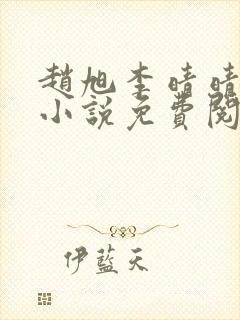 趙旭李晴晴
小說免費閱
伊藍天